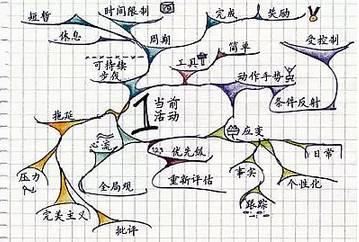 短暂
时间限制
完成
奖励
休息
周期
简单
受控制
可持续
步伐
工具
动作手势
条件反射
拖延
1
当前
活动
应变
心流
优先级
日常
压力
全局观
重新评估
事实
个性化
完美主义
跟踪
批评